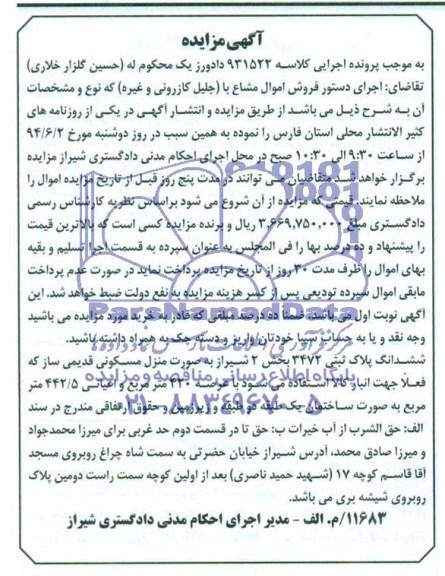 آگهی مزایده
به موجب پرونده اجرایی کلاسه ۹۳۱۵۲۲ دادورز یک محکوم له (حسین گلزار خلاری)
تقاضای: اجرای دستور فروش اموال مشاع با (جلیل کازرونی و غیره) که نوع و مشخصات
آن به شرح ذیل می باشد از طریق مزایده و انتشار آگهی در یکی از روزنامه های
کثیر الانتشار محلی استان فارس را نموده به همین سبب در روز دوشنبه مورخ ۹۴/۶/۲
از ساعت ۹:۳۰ الی ۱۰:۳۰ صبح در محل اجرای احکام مدنی دادگستری شیراز مزایده
برگزار خواهد شد متقاضیان می توانند در مدت پنج روز قبل از تاریخ مزایده اموال را
ملاحظه نمایند. قیمتی که مزایده از آن شروع می شود براساس نظریه کارشناس رسمی
دادگستری مبلغ ۳،۶۶۹،۷۵۰،۰۰۰ ریال و برنده مزایده کسی است که بالاترین قیمت
را پیشنهاد و ده درصد بها را فی المجلس به عنوان سپرده به قسمت اجرا تسلیم و بقیه
بهای اموال را ظرف مدت ۳۰ روز از تاریخ مزایده پرداخت نماید در صورت عدم پرداخت
مابقی اموال سپرده تودیعی پس از کسر هزینه مزایده به نفع دولت ضبط خواهد شد. این
آگهی نوبت اول می باشد. ضمنا ده درصد مبلغی که قادر به خرید مورد مزایده می باشید
وجه نقد و یا به حساب سیبا خودتان واریز و دسته چک به همراه داشته باشید.
ششدانگ پلاک ثبتی ۳۴۷۲ بخش ۲ شیراز به صورت منزل مسکونی قدیمی ساز که
فعلا جهت انبار کالا استفاده می شود با عرصه ۴۳۰ متر مربع و اعیانی ۴۴۲/۵ متر
مربع به صورت ساختمان یک طبقه دو طبقه و زیرزمین و حقوق ارفاقی مندرج در سند
الف: حق الشرب از آب خیرات ب: حق تا در قسمت دوم حد غربی برای میرزا محمدجواد
و میرزا صادق محمد، آدرس شیراز خیابان حضرتی به سمت شاه چراغ روبروی مسجد
آقا قاسم کوچه ۱۷ (شهید حمید ناصری) بعد از اولین کوچه سمت راست دومین پلاک
روبروی شیشه بری می باشد.
۱۱۶۸۳/م. الف - مدیر اجرای احکام مدنی دادگستری شیراز
پایگاه اطلاع رسانی مناقصه و مزایده
۰۲۱-۸۸۳۴۹۶۷۰-۵